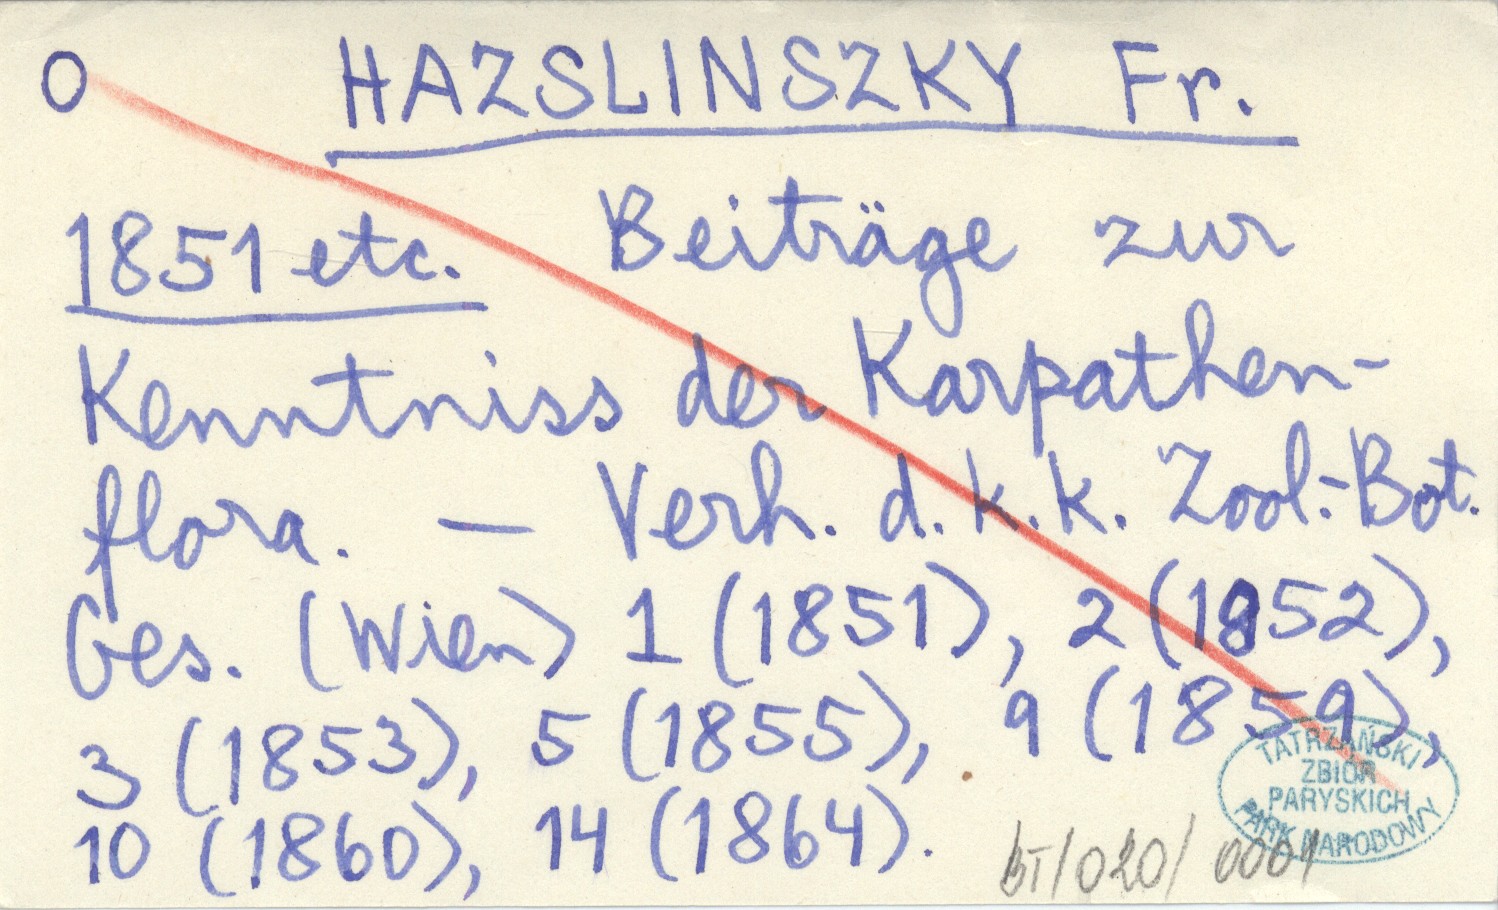 O HAZSLINSZKY Fr.
1851 etc. Beiträge zur
Kenntniss der Karpathen-
flora. — Verh. d. k. k. Zool.-Bot.
Ges. (Wien) 1 (1851), 2 (1852),
3 (1853), 5 (1855), 9 (1859),
10 (1860), 14 (1864).
TATRZAŃSKI
ZBIÓR
PARYSKICH
PARK NARODOWY
BT/020/0001